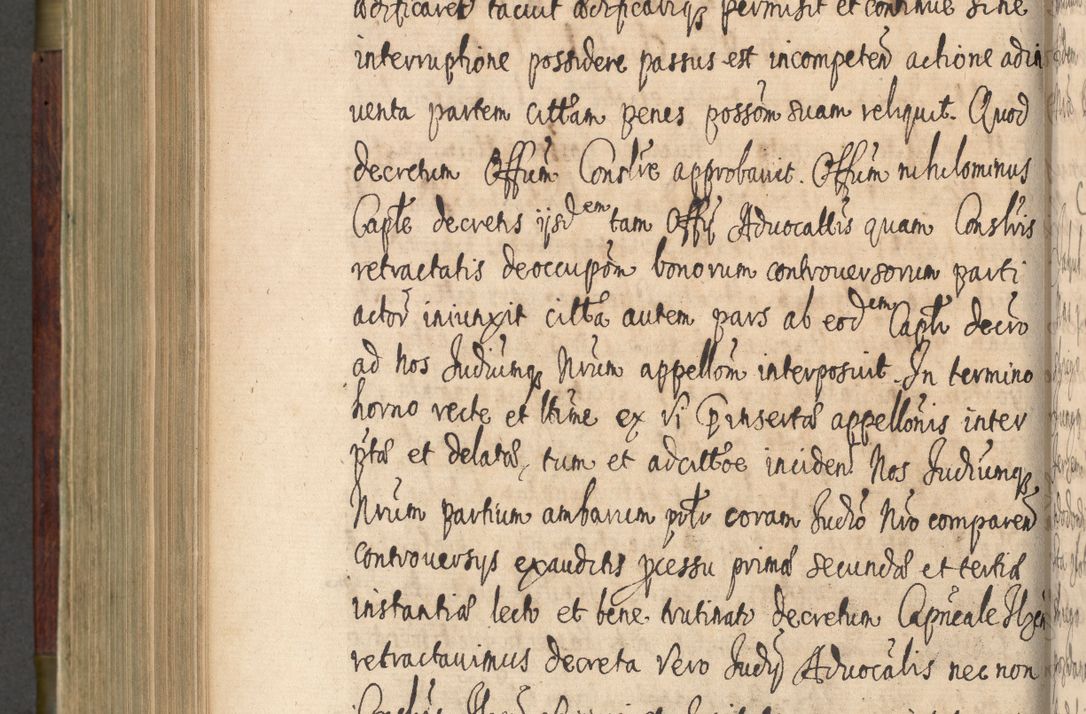 ædificaret tacuit ædificariqz permisit et continue sine
interruptione possidere passus est incompeteñ actione adin
uenta partem cittam penes possõm suam reliquit. Quod
decretum Offũm Conslre approbauit. Offũm nihilominus
Capłe decretis ijsdem tam Offij Aduocallis quam Conslris
retractatis deoccupõm bonorum controuersorum parti
actor iniunxit citta autem pars ab eodem Capłi decro
ad Nos Judiumqz Nrũm appellõm interposuit. In termino
horno recte et lttime ex vi præinsertæ appellõnis inter
ptæ et delatæ, tum et adcittõe inciden Nos Judiumqz
Nrũm partium ambarum prłr coram Judio Nro compareñ
controuersijs exauditis pcessu primæ secundæ et tertiæ
instantiæ lecto et bene trutinato decretum Capneale Ilzen
retractauimus decreta vero Judij Aduocãlis nec non